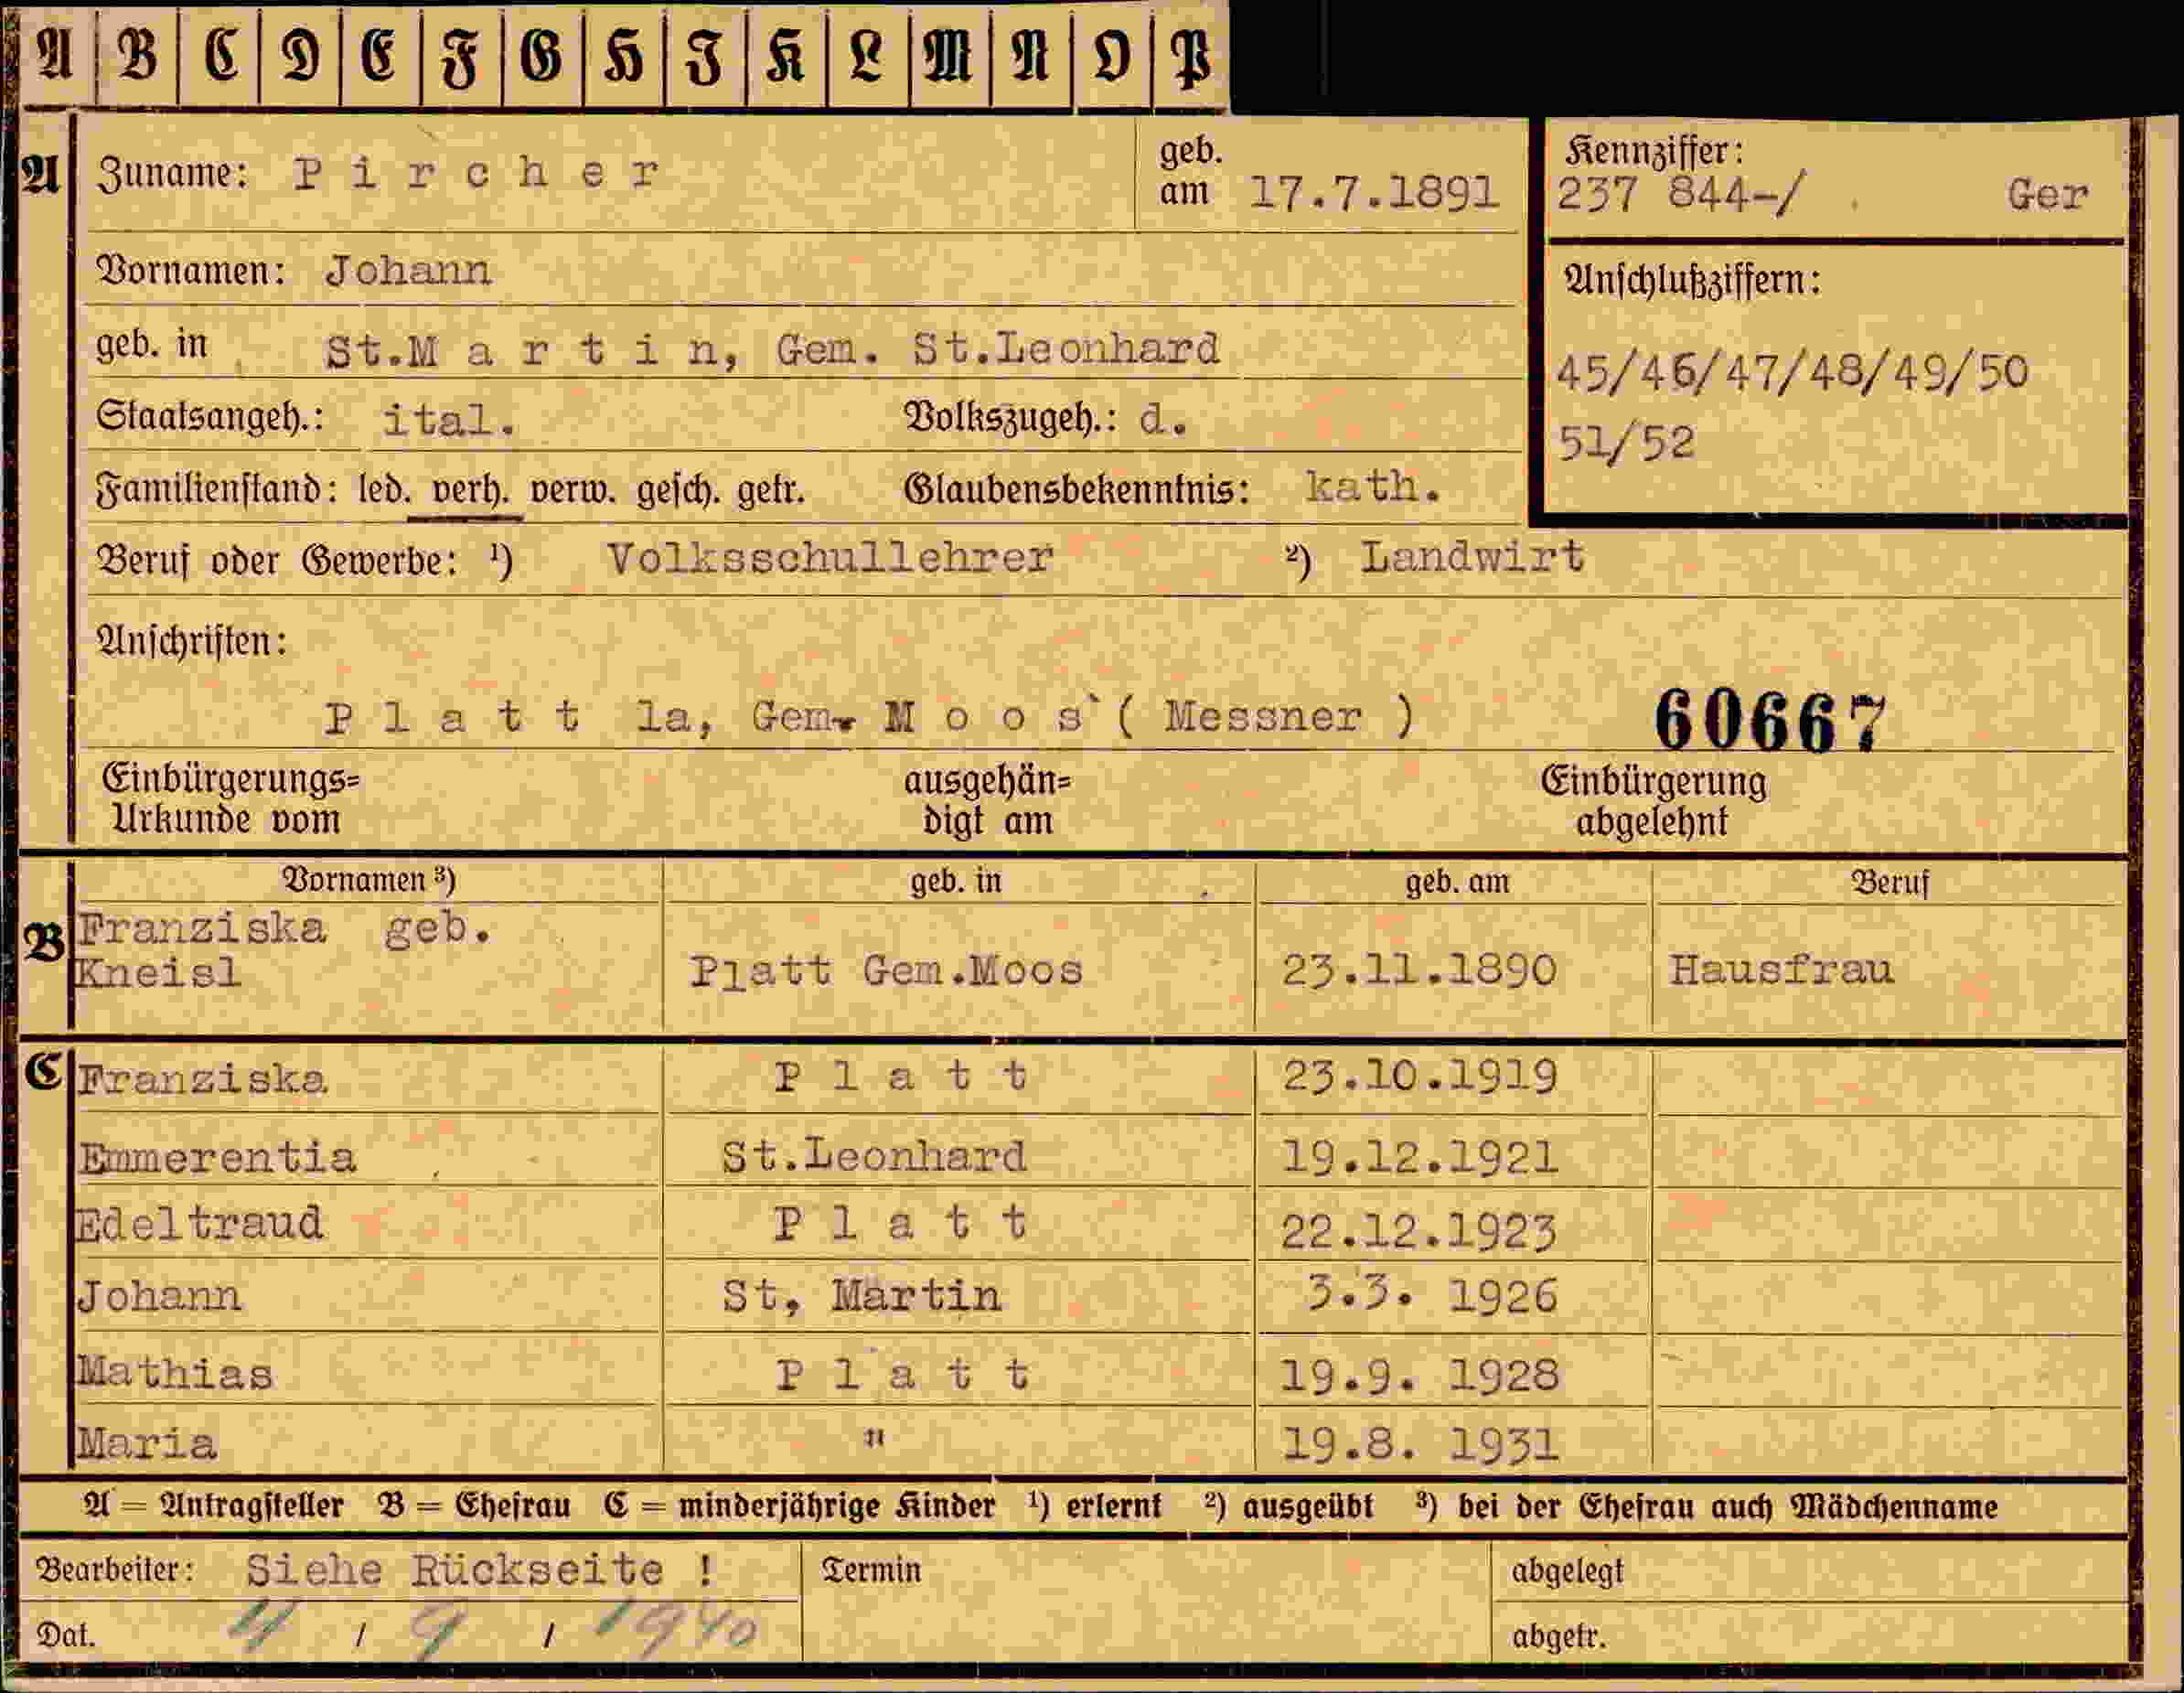 A B C D E F G H I K L M N O P
A Zuname: P i r c h e r geb. am 17.7.1891 Kennziffer: 237 844-/ Ger
Vornamen: Johann Anschlußziffern:
geb. in St.M a r t i n, Gem. St.Leonhard 45/46/47/48/49/50
Staatsangeh.: ital. Volkszugeh.: d. 51/52
Familienstand: led. verh. verw. gesch. getr. Glaubensbekenntnis: kath.
Beruf oder Gewerbe: ¹) Volksschullehrer ²) Landwirt
Anschriften:
P l a t t 1a, Gem. M o o s ( Messner ) 60667
Einbürgerungs= ausgehän= Einbürgerung
Urkunde vom digt am abgelehnt
Vornamen ³) geb. in geb. am Beruf
B Franziska geb.
Kneisl Platt Gem.Moos 23.11.1890 Hausfrau
C Franziska P l a t t 23.10.1919
Emmerentia St.Leonhard 19.12.1921
Edeltraud P l a t t 22.12.1923
Johann St, Martin 3.3. 1926
Mathias P l a t t 19.9. 1928
Maria " 19.8. 1931
A = Antragsteller B = Ehefrau C = minderjährige Kinder ¹) erlernt ²) ausgeübt ³) bei der Ehefrau auch Mädchenname
Bearbeiter: Siehe Rückseite ! Termin abgelegt
Dat. / 9 / 1940 abgetr.